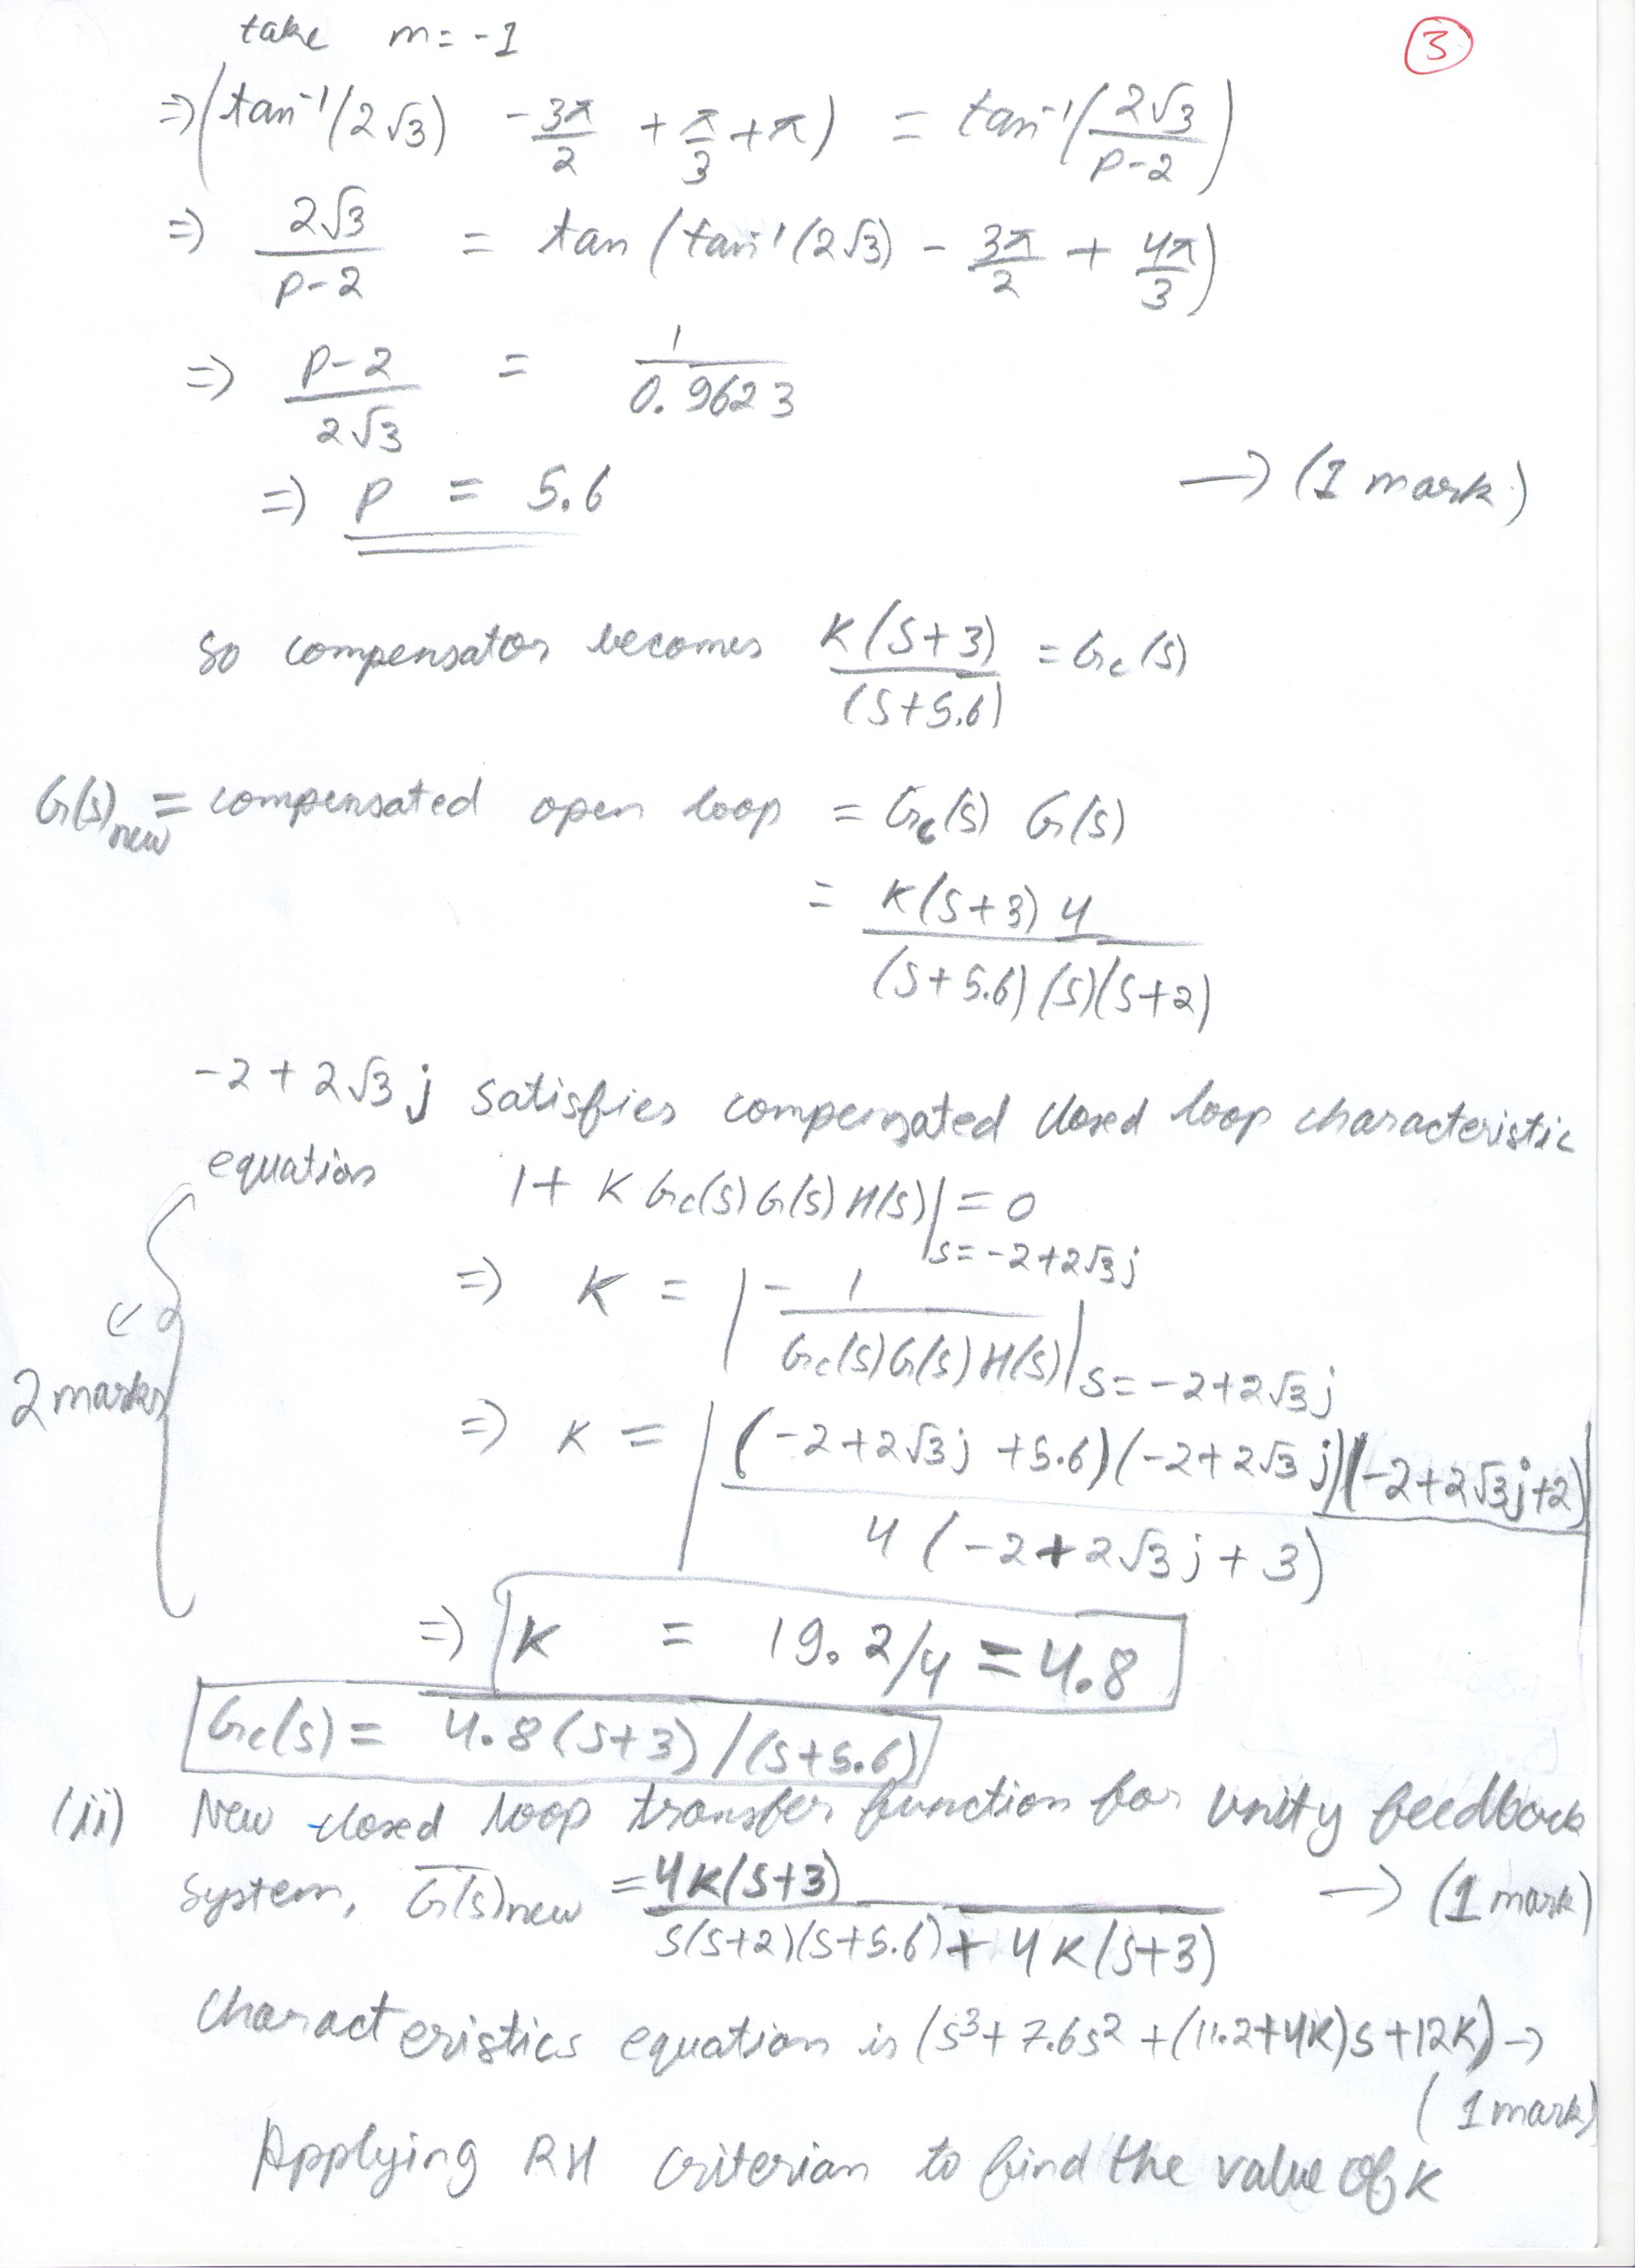 take m = -1
③
⇒ (tan⁻¹(2√3) - 3π/2 + π/3 + π) = tan⁻¹(2√3/(p-2))
⇒ 2√3/(p-2) = tan(tan⁻¹(2√3) - 3π/2 + 4π/3)
⇒ (p-2)/(2√3) = 1/0.9623
⇒ p = 5.6 → (1 mark)
So compensator becomes K(s+3)/(s+5.6) = Gc(s)
G(s)new = compensated open loop = Gc(s) G(s)
= K(s+3) 4/((s+5.6)(s)(s+2))
-2+2√3 j satisfies compensated closed loop characteristic
equation 1 + K Gc(s) G(s) H(s)|s=-2+2√3j = 0
⇒ K = |-1/(Gc(s)G(s)H(s))|s=-2+2√3j
2 marks
⇒ K = |(-2+2√3j+5.6)(-2+2√3j)(-2+2√3j+2)/(4(-2+2√3j+3))|
⇒ K = 19.2/4 = 4.8
Gc(s) = 4.8(s+3)/(s+5.6)
(ii) New closed loop transfer function for unity feedback
system, G(s)new = 4K(s+3)/(s(s+2)(s+5.6)+4K(s+3)) → (1 mark)
characteristics equation is (s³+7.6s²+(11.2+4K)s+12K) →
(1 mark)
Applying RH criterian to find the value of K